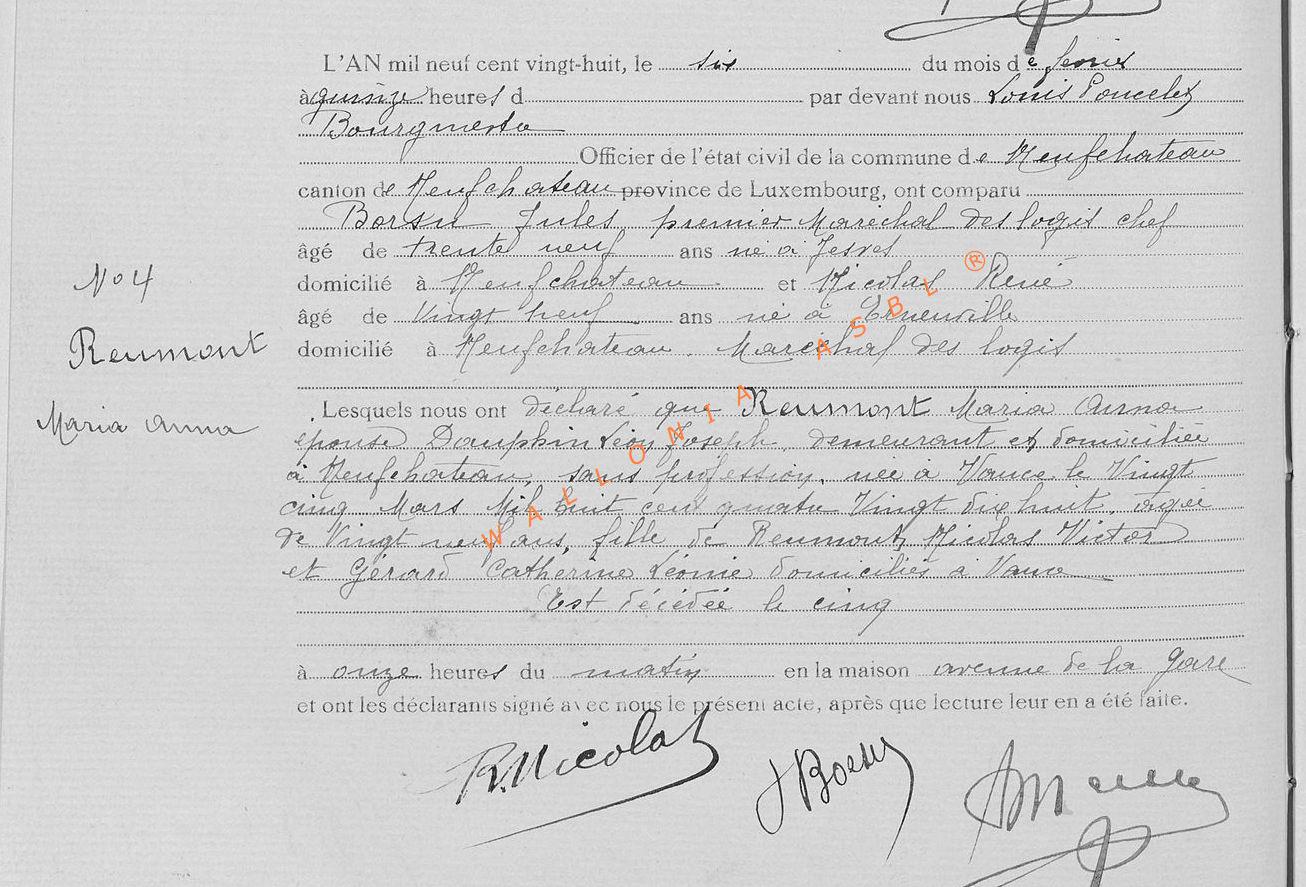 L'AN mil neuf cent vingt-huit, le six du mois de février
à quinze heures d par devant nous Louis Poncelet
Bourgmestre
Officier de l'état civil de la commune de Neufchateau
canton de Neufchateau province de Luxembourg, ont comparu
Borsu Jules premier Maréchal des logis chef
âgé de trente neuf ans né à Jesves
domicilié à Neufchateau et Nicolas René
âgé de Vingt neuf ans né à Erneuville
domicilié à Neufchateau. Maréchal des logis
No 4
Reumont
Maria Anna
Lesquels nous ont déclaré que Reumont Maria Anna
épouse Dauphin Léon Joseph, demeurant et domiciliée
à Neufchateau, sans profession, née à Vance le Vingt
cinq Mars Mil huit cent quatre Vingt dix huit, agée
de Vingt neuf ans, fille de Reumont, Nicolas Victor
et Gérard Catherine Léonie domiciliés à Vance
Est décédée le cinq
à onze heures du matin en la maison avenue de la gare
et ont les déclarants signé avec nous le présent acte, après que lecture leur en a été faite.
R. Nicolas
J Borsu
WALLONIA ASBL ®